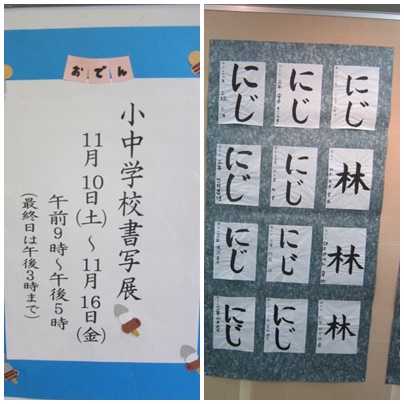 おでん
小中学校書写展
11月10日(土)～11月16日(金)
午前9時～午後5時
(最終日は午後3時まで)
にじ
にじ
にじ
にじ
にじ
林
にじ
にじ
林
にじ
にじ
林